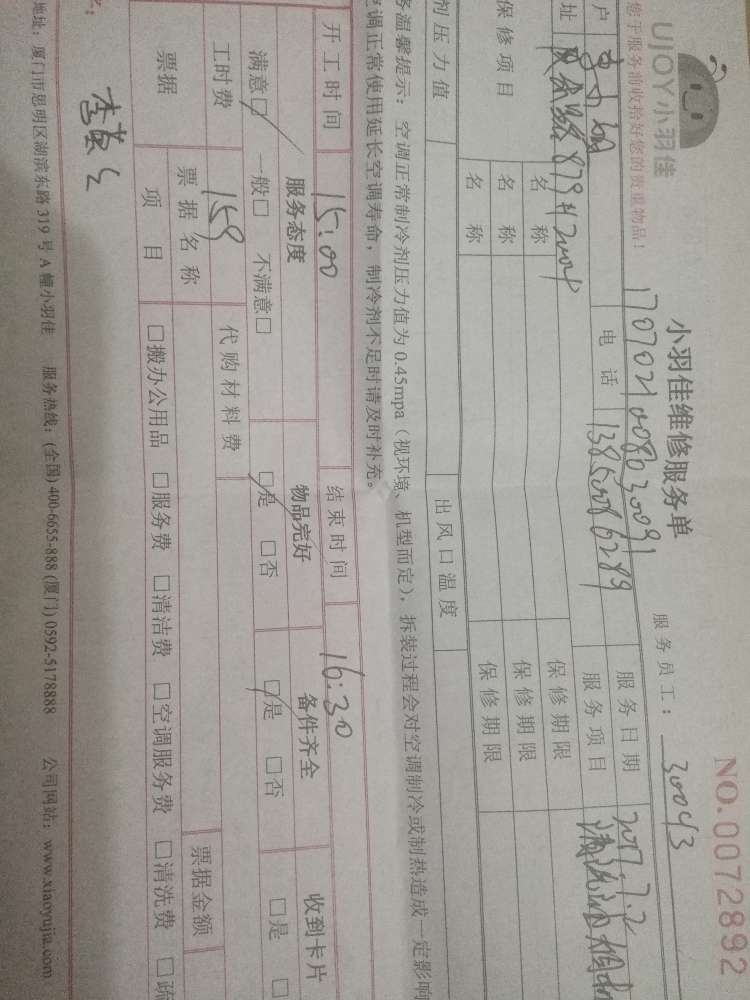 UJOY小羽佳
小羽佳维修服务单
NO.0072892
您于服务前收拾好您的贵重物品!
服务员工:
30043
户
电 话
服务日期
2017.7.2
址
879#
服务项目
保修项目
名 称
保修期限
名 称
保修期限
名 称
保修期限
剂压力值
出风口温度
务温馨提示:空调正常制冷剂压力值为0.45mpa(视环境、机型而定),拆装过程会对空调制冷或制热造成一定影响
空调正常使用延长空调寿命,制冷剂不足时请及时补充。
开工时间
15:00
结束时间
16:30
服务态度
物品完好
备件齐全
收到卡片
满意□ 一般□ 不满意□
□是 □否
□是 □否
□是 □
工时费
159
代购材料费
票据
票据名称
票据金额
项 目
□搬办公用品 □服务费 □清洁费 □空调服务费 □清洗费 □疏
地址:厦门市思明区湖滨东路319号A幢小羽佳 服务热线:(全国)400-6655-888 (厦门)0592-5178888 公司网站:www.xiaoyujia.com